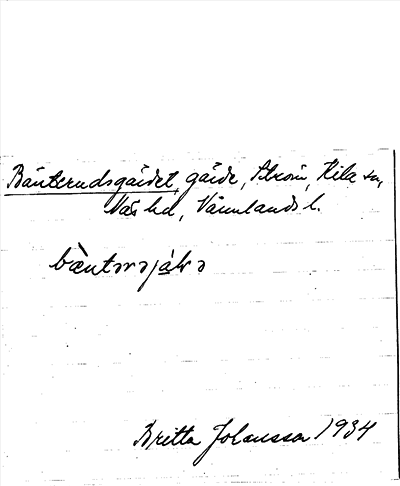 Bänterudsgärdet, gärde, Strom, Kila sn,
Näs hd, Värmlands l.
bæ̀ntərəjáḷə
Britta Johansson 1934